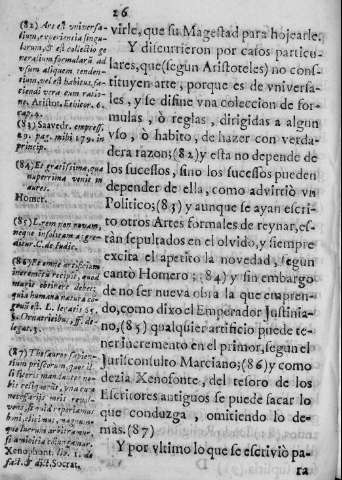 26
(82) Ars est vniversa-
lium, experientia singu-
larum, & est collectio ge-
neralium formalarũ ad
vsum aliquem tenden-
tium, vel ex habitu, fa-
ciendi vera cum ratio-
ne. Aristot. Eth. 6.
cap. 4.
(83) Saavedr. empress.
29. pag. mihi 179. in
princip.
(84) Est gratissima, quæ
nuperrima venit in
aures.
Homer.
(85) Legem non novam,
neque insolitam aggre-
ditur. C. de Iudic.
(86) Et omne artificium
incrementũ recipit, quod
maris obtinere debet:
quia humana natura co-
gnuit est. L. legatis 25.
§. Ornatricibus, ff. de
legat. 3.
(87) Thesauros sapien-
tium priscorum, quos il-
li
bis reliquerunt,
Xenophont. lib. 1. de
fact. & dict. Socrat.
virle, que su Magestad para hojearle.
Y discurrieron por casos particu-
lares, que (segun Aristoteles) no cons-
tituyen arte, porque es de vniversa-
les, y se difine vna coleccion de for-
mulas, ò reglas, dirigidas a algun
vso, ò habito, de hazer con verda-
dera razon; (82) y esta no depende de
los sucessos, sino los sucessos pueden
depender de ella, como advirtiò vn
Politico; (83) y aunque se ayan escri-
to otros Artes formales de reynar, es-
tàn sepultados en el olvido, y siempre
excita el apetito la novedad, segun
cantò Homero; (84) y sin embargo
de no ser nueva obra la que empren-
do, como dixo el Emperador Justinia-
no, (85) qualquier artificio puede te-
ner incremento en el primor, segun el
Jurisconsulto Marciano; (86) y como
dezia Xenofonte, del tesoro de los
Escritores antiguos se puede sacar lo
que conduzga, omitiendo lo de-
màs. (87)
Y por vltimo lo que se escriviò pa-
ra